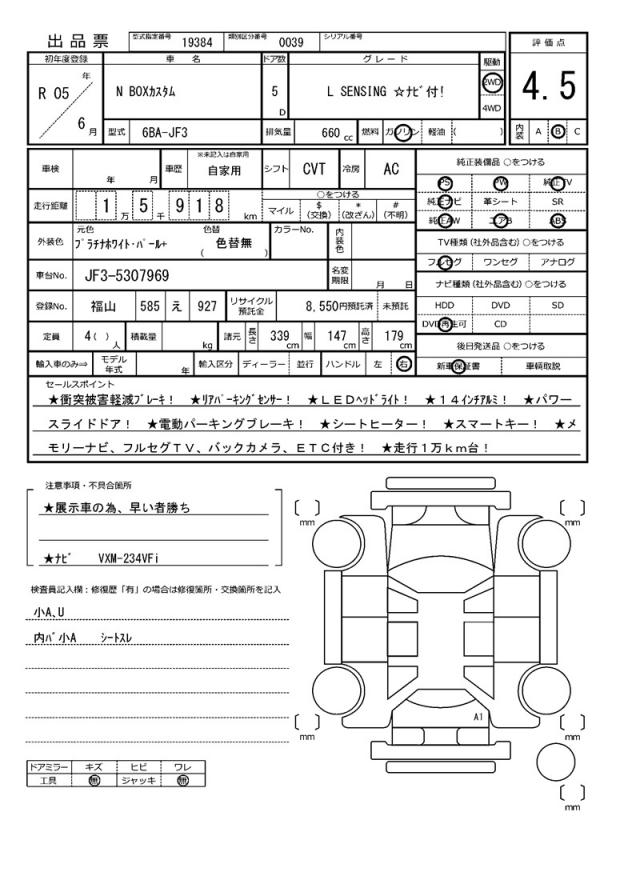 出品票 型式指定番号 19384 類別区分番号 0039 シリアル番号
評価点
4.5
内装 A B C
初年度登録 車名 ドア数 グレード 駆動
R 05 年 6 月 N BOXカスタム 5 D L SENSING ☆ナビ付! 2WD 4WD
型式 6BA-JF3 排気量 660 cc 燃料 ガソリン 軽油 ( )
車検 年 月 車歴 ※未記入は自家用 自家用 シフト CVT 冷房 AC
走行距離 1 万 5 千 9 1 8 km ○をつける マイル $(交換) *(改ざん) #(不明)
外装色 元色 プラチナホワイト・パール+ 色替 ( 色替無 ) カラーNo. 内装色
車台No. JF3-5307969 名変期限 月 日
登録No. 福山 585 え 927 リサイクル預託金 8,550円預託済 未預託
定員 4( ) 人 積載量 kg 諸元 長さ 339 cm 幅 147 cm 高さ 179 cm
輸入車のみ⇒ モデル年式 年 輸入区分 ディーラー 並行 ハンドル 左 右
純正装備品 ○をつける
PS PW 純正TV
純正ナビ 革シート SR
純正AW エアB ABS
TV種類(社外品含む) ○をつける
フルセグ ワンセグ アナログ
ナビ種類(社外品含む) ○をつける
HDD DVD SD
DVD再生可 CD
後日発送品 ○をつける
新車保証書 車輌取説
セールスポイント
★衝突被害軽減ブレーキ! ★リアパーキングセンサー! ★LEDヘッドライト! ★14インチアルミ! ★パワー
スライドドア! ★電動パーキングブレーキ! ★シートヒーター! ★スマートキー! ★メ
モリーナビ、フルセグTV、バックカメラ、ETC付き! ★走行1万km台!
注意事項・不具合箇所
★展示車の為、早い者勝ち
★ナビ VXM-234VFi
検査員記入欄:修復歴「有」の場合は修復箇所・交換箇所を記入
小A、U
内バ小A シートスレ
ドアミラー キズ ヒビ ワレ
工具 無 ジャッキ 無
[ ] mm [ ] mm
A1
[ ] mm [ ] mm
[ ] mm